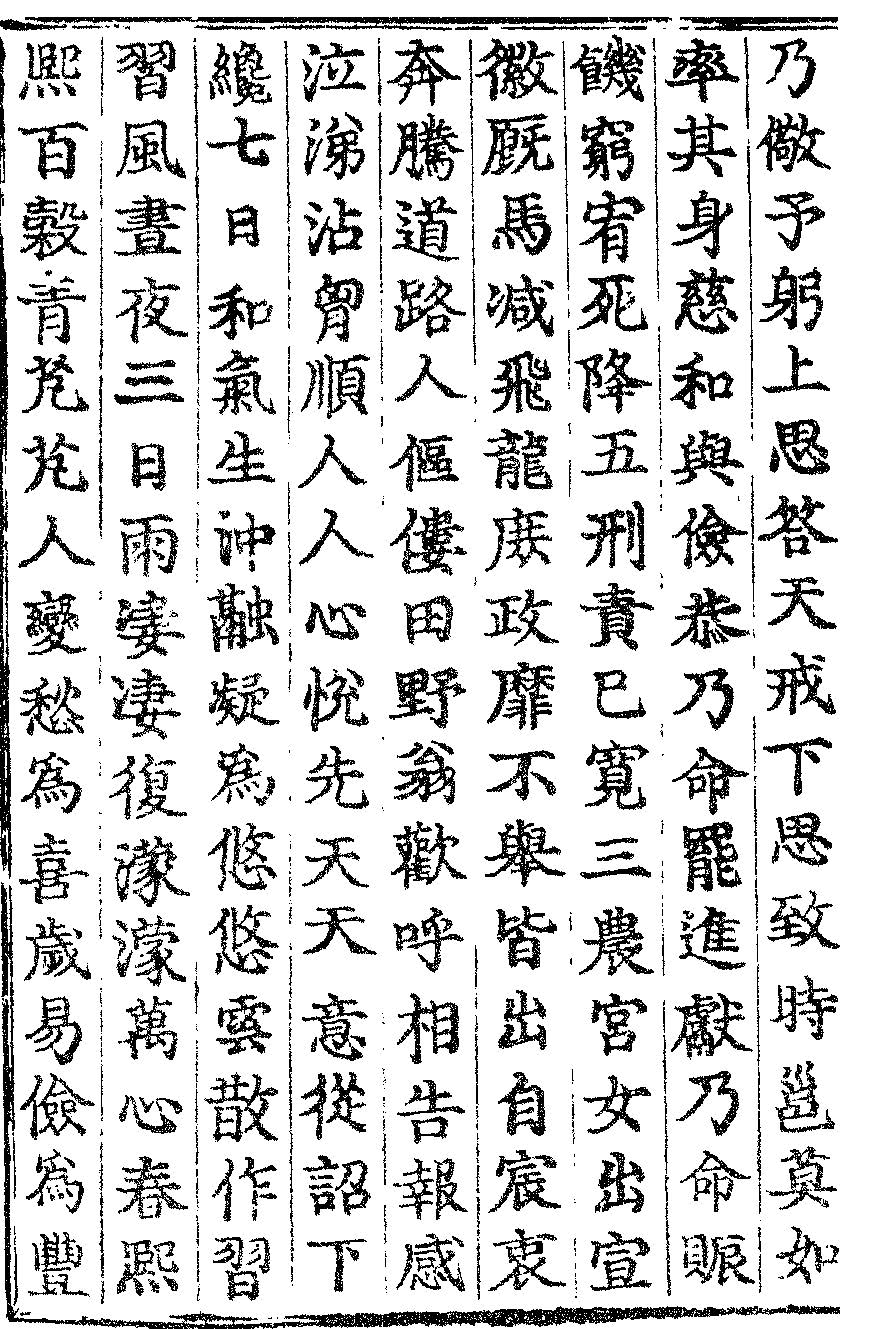 乃儆予躬上思答天戒下思致時邕莫如
率其身慈和與儉恭乃命罷進獻乃命賑
饑窮宥死降五刑責已寛三農宮女出宣
徽厩馬减飛龍庻政靡不舉皆出自宸衷
奔騰道路人傴僂田野翁歡呼相告報感
泣涕沾胷順人人心悅先天天意從詔下
纔七日和氣生沖融凝為悠悠雲散作習
習風晝夜三日雨凄凄復濛濛萬心春熙
熙百穀青芃芃人變愁為喜歲易儉為豐